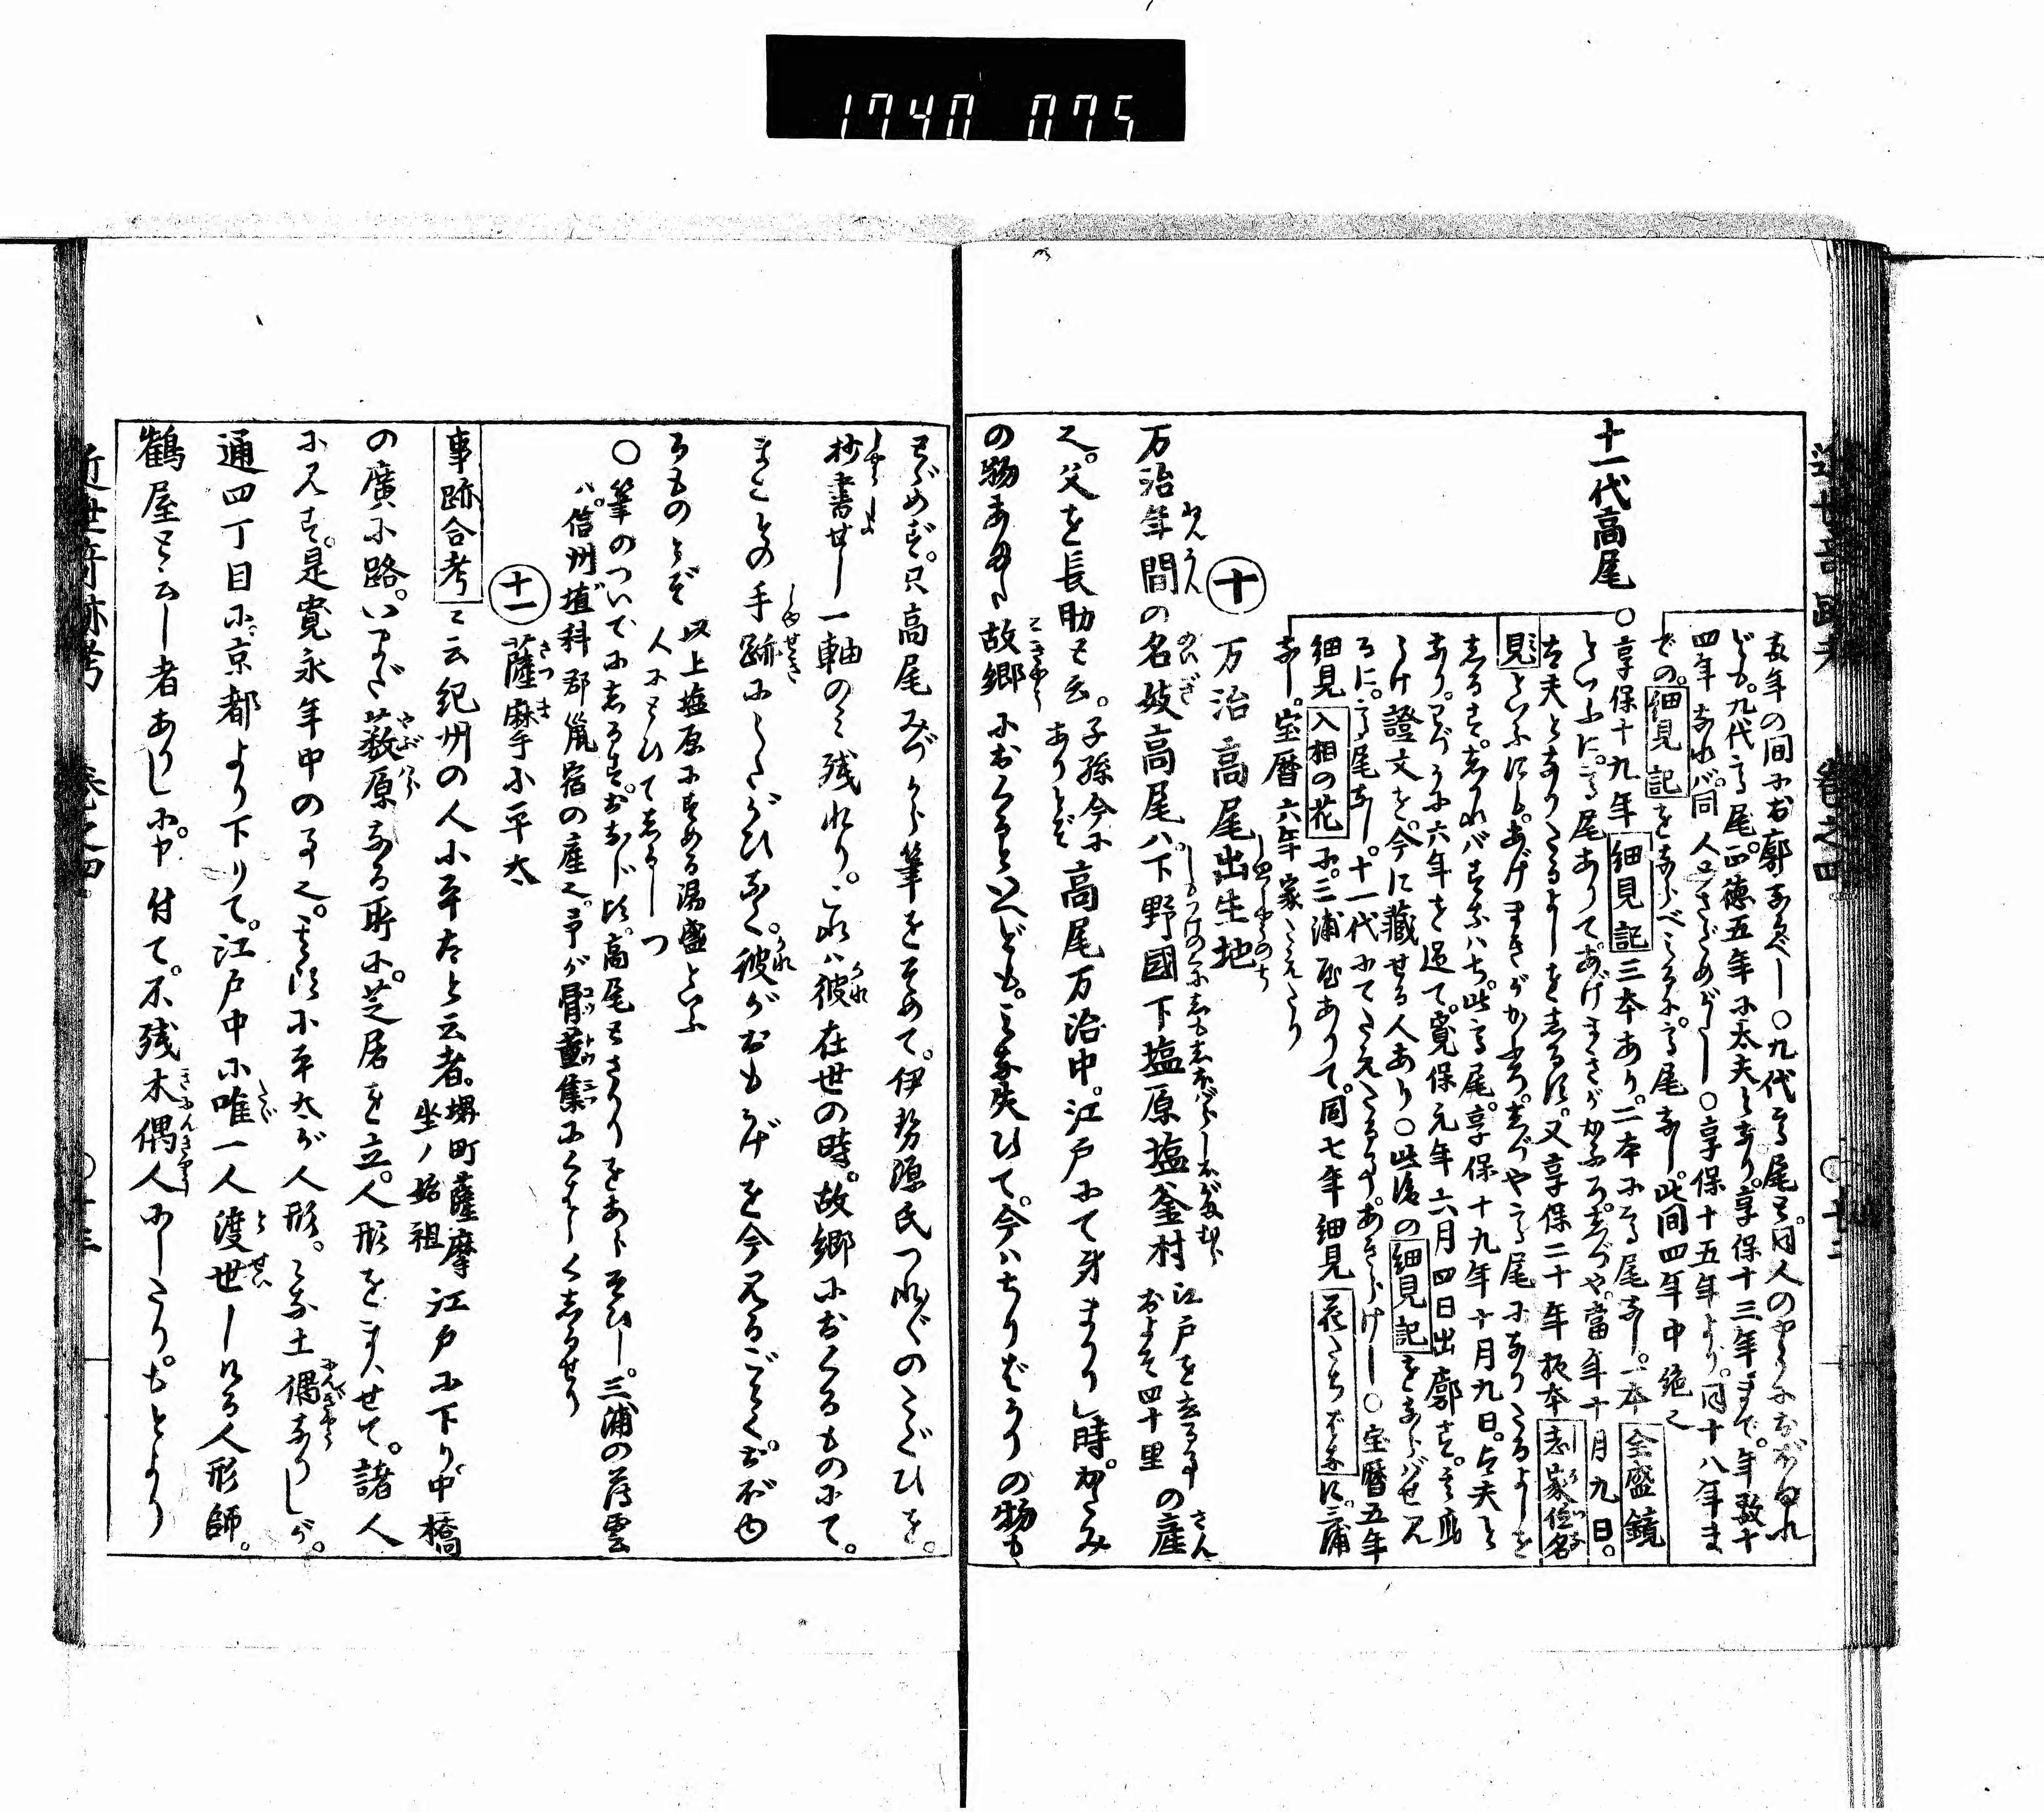 1740 075
十一代高尾
年の間に出廓なるべし〇九代高尾も。同人の
ども。九代高尾。正徳五年に太夫となり。享保十三年まで。年数十
四年なれバ。同人とさだめがたし〇享保十五年より。同十八年ま
での。細見記をならべみるに。高尾なし。此間四年中絶也
〇享保十九年細見記三本あり。二本に高尾なし。一本全盛鏡
といふに。高尾ありて。あげまきがかふろ。しづや。当年十月九日。
太夫となりたるよしをしるす。又享保二十年板本
見といふにも。あげまきがかふろ。しづや高尾になりたるよしを
しるす。しかれバすなハち。此高尾。享保十九年十月九日。太夫と
なり。わづかに六年を過て。寛保元年六月四日出廓す。其
うけ證文を。今に蔵せる人あり〇此後の細見記をならバせ見
るに。高尾なし。十一代にてたえたる事。あきらけし〇宝暦五年
細見入相の花に。三浦屋ありて。同七年細見花たちばなに。三浦
なし。宝暦六年家たえたり
十 万治高尾出生地
万治年間の名妓高尾ハ。下野國下塩原塩釜村江戸を去る事およそ四十里の産
也。父を長助と云。子孫今にありとぞ高尾万治中。江戸にて身まかりし時。かたみ
の物あまた故郷におくるといへども。みな失ひて。今ハちりばかりの物も
とゞめず。只高尾みづから筆をそめて。伊勢源氏つれ〴〵のたぐひを。
抄書せし一軸のミ残れり。これハ彼在世の時。故郷におくるものにて。
まことの手跡にうたがひなく。彼がおもかげを今見るごとく。おぼゆ
るものとぞ 以上塩原にすめる湯盛といふ人にとひてしるしつ
〇筆のついでにしるす。おなじ頃。高尾とさかりをあらそひし。三浦の薄雲
ハ。信州埴科郡鼠宿の産也。予が骨董集にくはしくしるせり
十一 薩摩小平太
事跡合考ニ云紀州の人小平太と云者。堺町薩摩坐ノ始祖江戸に下り。中橋
の廣小路。いまだ薮原なる所に。芝居を立。人形をまハせて。諸人
に見す。是寛永年中の事也。其頃小平太が人形。みな土偶なりしが。
通四丁目に。京都より下りて。江戸中に唯一人渡世しける人形師。
鶴屋と云し者ありしに。申付て。不残木偶人にしたり。もとより
近世奇跡考 巻之四